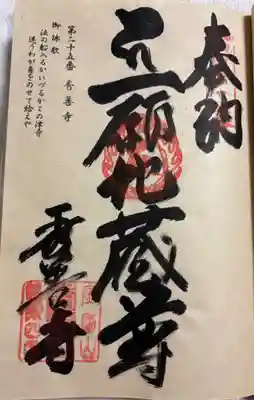 奉納
立願地蔵尊
第二十五番 秀善寺
御詠歌
法の船入るかいづるかこの津寺
迷うわが身をのせて給えや
秀善寺